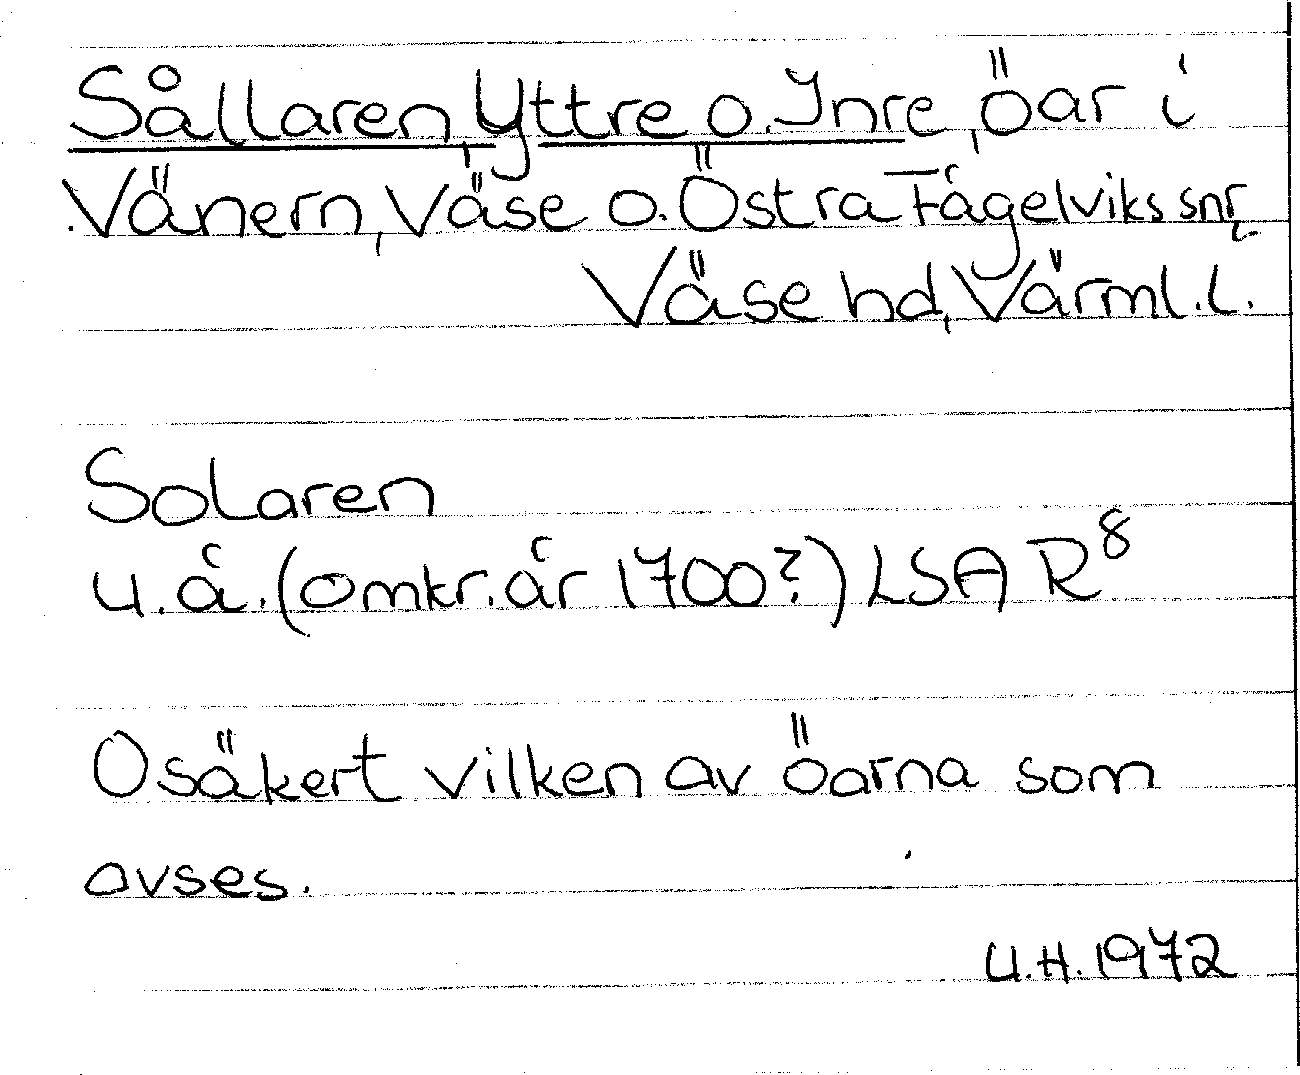 Sållaren, Yttre o. Inre, öar i
Vänern, Väse o. Östra Fågelviks snr,
Väse hd, Värml. l.
Solaren
u.å. (omkr. år 1700?) LSA R⁸
Osäkert vilken av öarna som
avses.
U.H. 1972